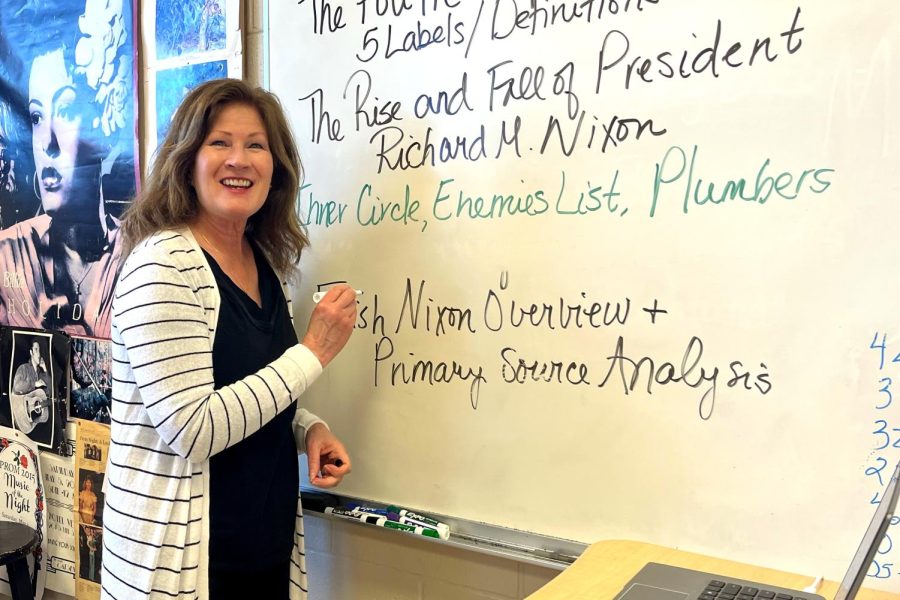 The Fou
5 Labels/Definitions
The Rise and Fall of President
Richard M. Nixon
Inner Circle, Enemies List, Plumbers
ish Nixon Overview +
Primary Source Analysis
4
3
32
2
4
PROM 2015
Music
of the
Night